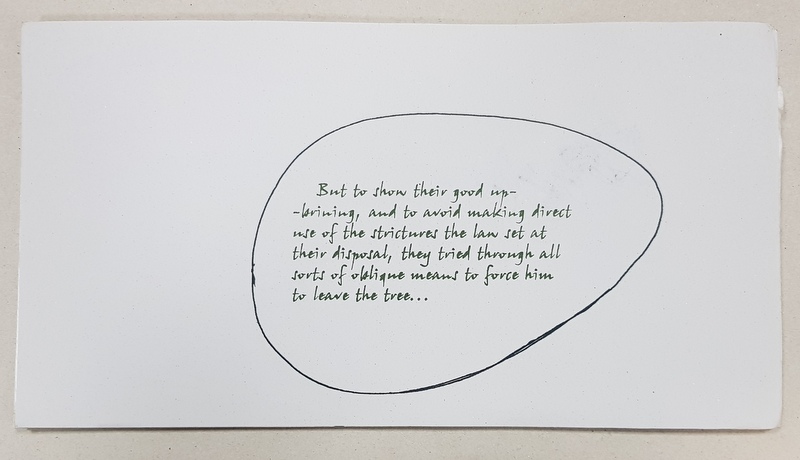 But to show their good up-
-brining, and to avoid making direct
use of the strictures the law set at
their disposal, they tried through all
sorts of oblique means to force him
to leave the tree...